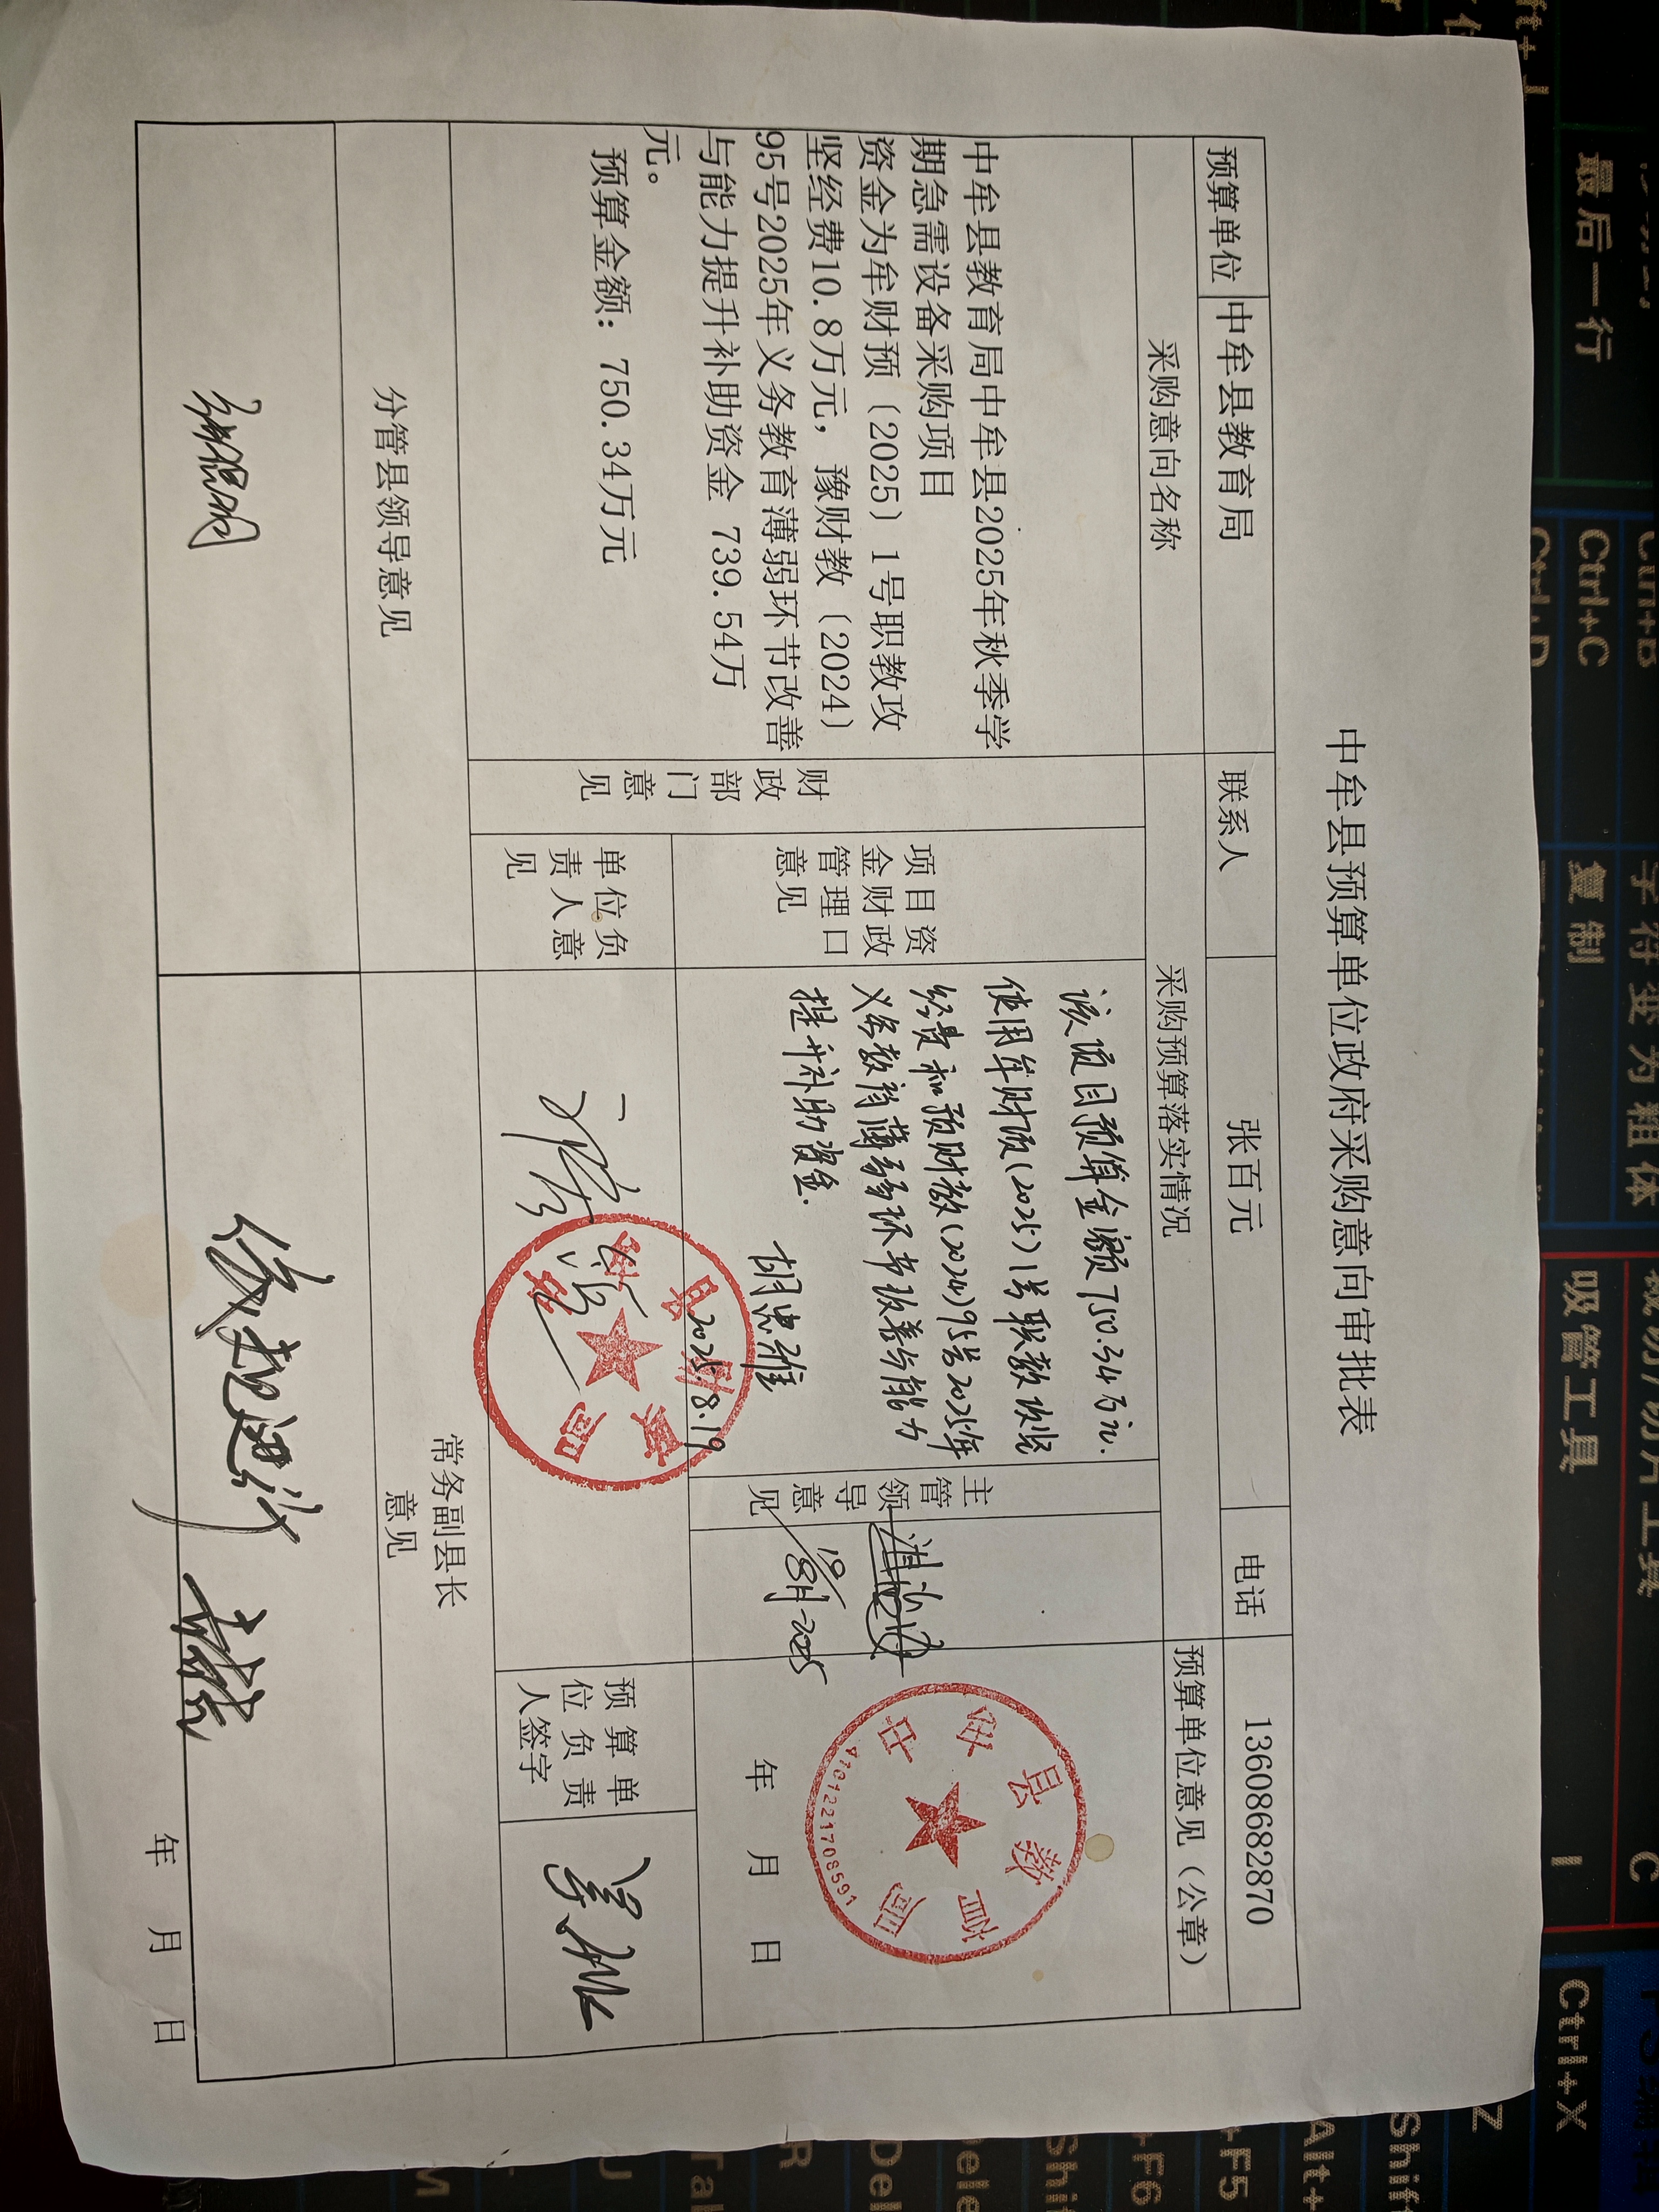 中牟县预算单位政府采购意向审批表
预算单位 中牟县教育局 联系人 张百元 电话 13608682870
采购意向名称 采购预算落实情况 预算单位意见（公章）
中牟县教育局中牟县2025年秋季学
期急需设备采购项目
资金为牟财预（2025）1号职教攻
坚经费10.8万元，豫财教（2024）
95号2025年义务教育薄弱环节改善
与能力提升补助资金 739.54万
元。
预算金额：750.34万元
财
政
部
门
意
见
项目资
金财政
管理口
意见
该项目预算金额750.34万元.
使用牟财预(2025)1号职教攻坚
经费和预财教(2024)95号2025年
义务教育薄弱环节改善与能力
提升补助资金.
2025.8.19
主
管
领
导
意
见
19/8月-2025
中牟县教育局
4101221708591
年 月 日
单位负
责人意
见
财政局
预算单
位负责
人签字
分管县领导意见
常务副县长
意见
年 月 日
最后一行
Ctrl+B
字符变为粗体
Ctrl+C
复制
Ctrl+D
吸管工具
I
C
Ctrl+X
Z
Shift
Alt+
+F5
+F6
Shi
Dele
Del
R
Tal
U
M